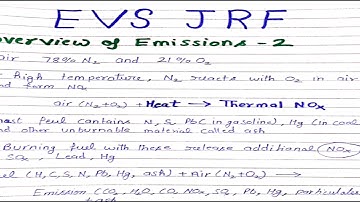 EVS JRF
overview of Emissions - 2
air 78% N₂ and 21% O₂
High temperature, N₂ reacts with O₂ in air
and form NOx
air (N₂+O₂) + Heat → Thermal NOx
most fuel contains N, S, Pb (in gasoline), Hg (in coal
and other unburnable material called ash
Burning fuel with these release additional NOx
SOx, Lead, Hg
uel (H, C, S, N, Pb, Hg, ash) + Air (N₂+O₂) →
Emission (CO₂, H₂O, CO, NOx, SO₂, Pb, Hg, particulate
+ ash